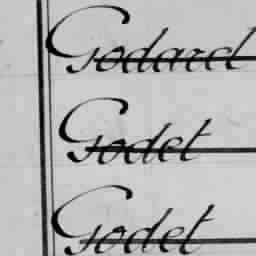 Godard
Godet
Godet